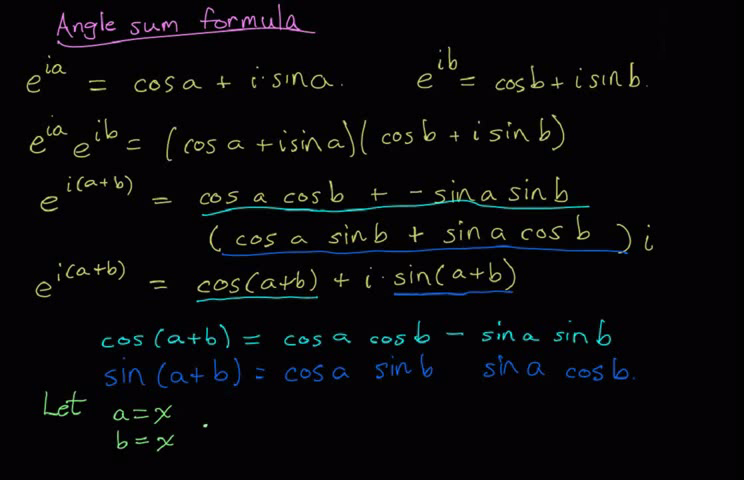 Angle sum formula
e^{ia} = cos a + i·sin a. e^{ib} = cos b + i sin b.
e^{ia} e^{ib} = (cos a + i sin a)(cos b + i sin b)
e^{i(a+b)} = cos a cos b + - sin a sin b
(cos a sin b + sin a cos b) i
e^{i(a+b)} = cos(a+b) + i·sin(a+b)
cos(a+b) = cos a cos b - sin a sin b
sin(a+b) = cos a sin b sin a cos b.
Let a = x .
b = x